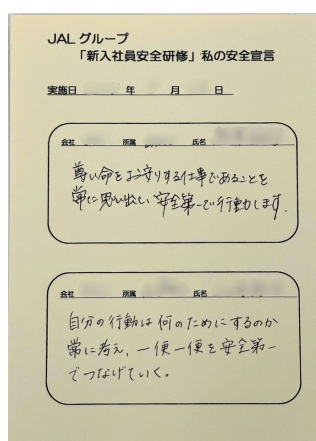 JAL グループ
「新入社員安全研修」私の安全宣言
実施日 年 月 日
会社 所属 氏名
尊い命をお守りする仕事であることを
常に思い出し、安全第一で行動します。
会社 所属 氏名
自分の行動は何のためにするのか
常に考え、一便一便を安全第一
でつなげていく。